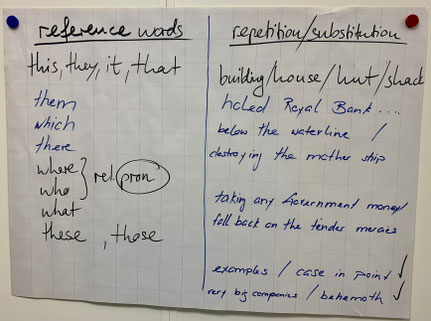 reference words
this, they, it, that
them
which
there
where
who } rel. pron
what
these , those
repetition/substitution
building/house/hut/shack
holed Royal Bank ....
below the waterline /
destroying the mother ship
taking any Government money/
fall back on the tender mercies
examples / case in point ✓
very big companies / behemoth ✓